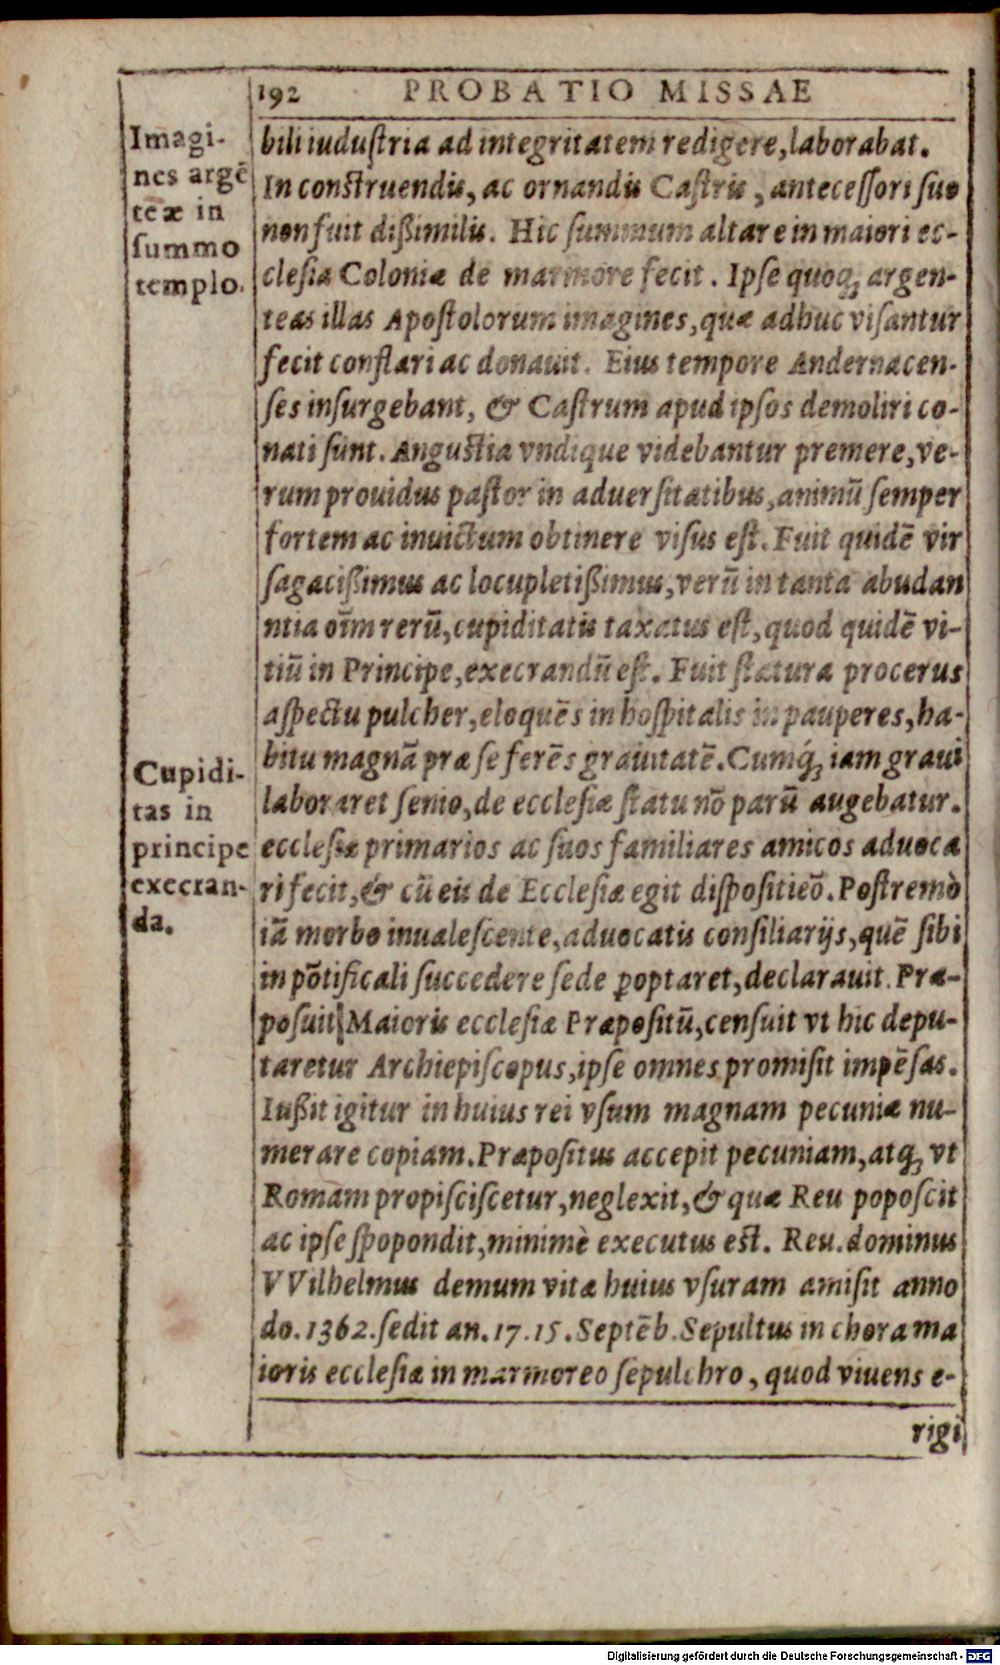 192 PROBATIO MISSAE
Imagi-
nes argē
teæ in
summo
templo.
bili iudustria ad integritatem redigere, laborabat.
In construendis, ac ornandis Castris, antecessori suo
non fuit dißimilis. Hic summum altare in maiori ec-
clesia Coloniæ de marmore fecit. Ipse quoq; argen-
teas illas Apostolorum imagines, quæ adhuc visantur
fecit conflari ac donauit. Eius tempore Andernacen-
ses insurgebant, & Castrum apud ipsos demoliri co-
nati sunt. Angustia vndique videbantur premere, ve-
rum prouidus pastor in aduersitatibus, animū semper
fortem ac inuictum obtinere visus est. Fuit quidē vir
sagacißimus ac locupletißimus, verū in tanta abudan
ntia oīm rerū, cupiditatis taxatus est, quod quidē vi-
tiū in Principe, execrandū est. Fuit statura procerus
aspectu pulcher, eloquēs in hospitalis in pauperes, ha-
bitu magnā præ se ferēs grauitatē. Cumq́; iam graui
laboraret senio, de ecclesiæ statu nō parū augebatur.
ecclesiæ primarios ac suos familiares amicos aduoca
ri fecit, & cū eis de Ecclesiæ egit dispositieō. Postremò
iā morbo inualescente, aduocatis consiliarijs, quē sibi
in pōtificali succedere sede ꝑoptaret, declarauit. Præ-
posuit Maioris ecclesiæ Præpositū, censuit vt hic depu-
taretur Archiepiscopus, ipse omnes promisit impēsas.
Iußit igitur in huius rei vsum magnam pecuniæ nu-
merare copiam. Præpositus accepit pecuniam, atq; vt
Romam propisciscetur, neglexit, & quæ Reu poposcit
ac ipse spopondit, minimè executus est. Reu. dominus
VVilhelmus demum vitæ huius vsuram amisit anno
do. 1362. sedit an. 17. 15. Septēb. Sepultus in chora ma
ioris ecclesiæ in marmoreo sepulchro, quod viuens e-
rigi
Cupidi-
tas in
principe
execran-
da.
Digitalisierung gefördert durch die Deutsche Forschungsgemeinschaft - DFG